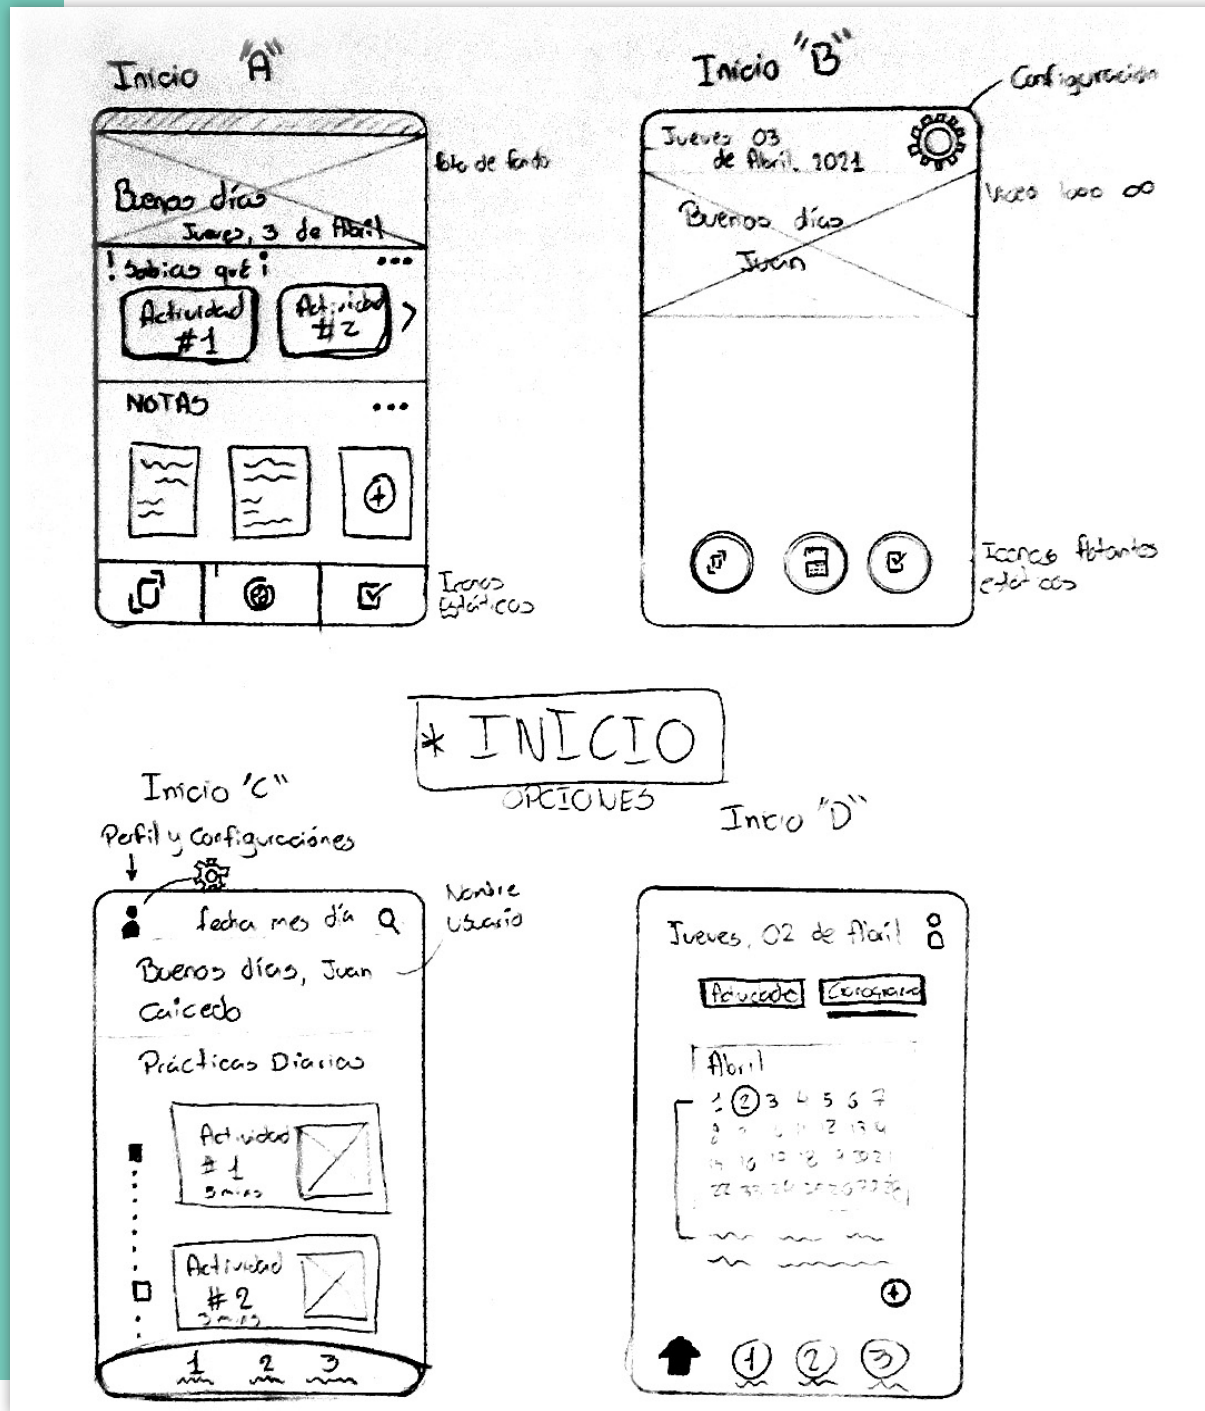 Inicio "A"
Buenos días
Jueves, 3 de Abril
foto de fondo
! Sabias que ¡
Actividad
#1
Actividad
#2
NOTAS
Iconos
Estáticos
Inicio "B"
Configuración
Jueves 03
de Abril. 2021
Buenos días
Juan
Video loop ∞
Iconos flotantes
estáticos
* INICIO
OPCIONES
Inicio 'C"
Perfil y Configuraciónes
fecha mes día
Nombre
Usuario
Buenos días, Juan
Caicedo
Prácticas Diarias
Actividad
# 1
3 mins
Actividad
# 2
3 mins
1 2 3
Inicio "D"
Jueves, 02 de Abril
Abril
1 2 3 4 5 6 7
1 2 3